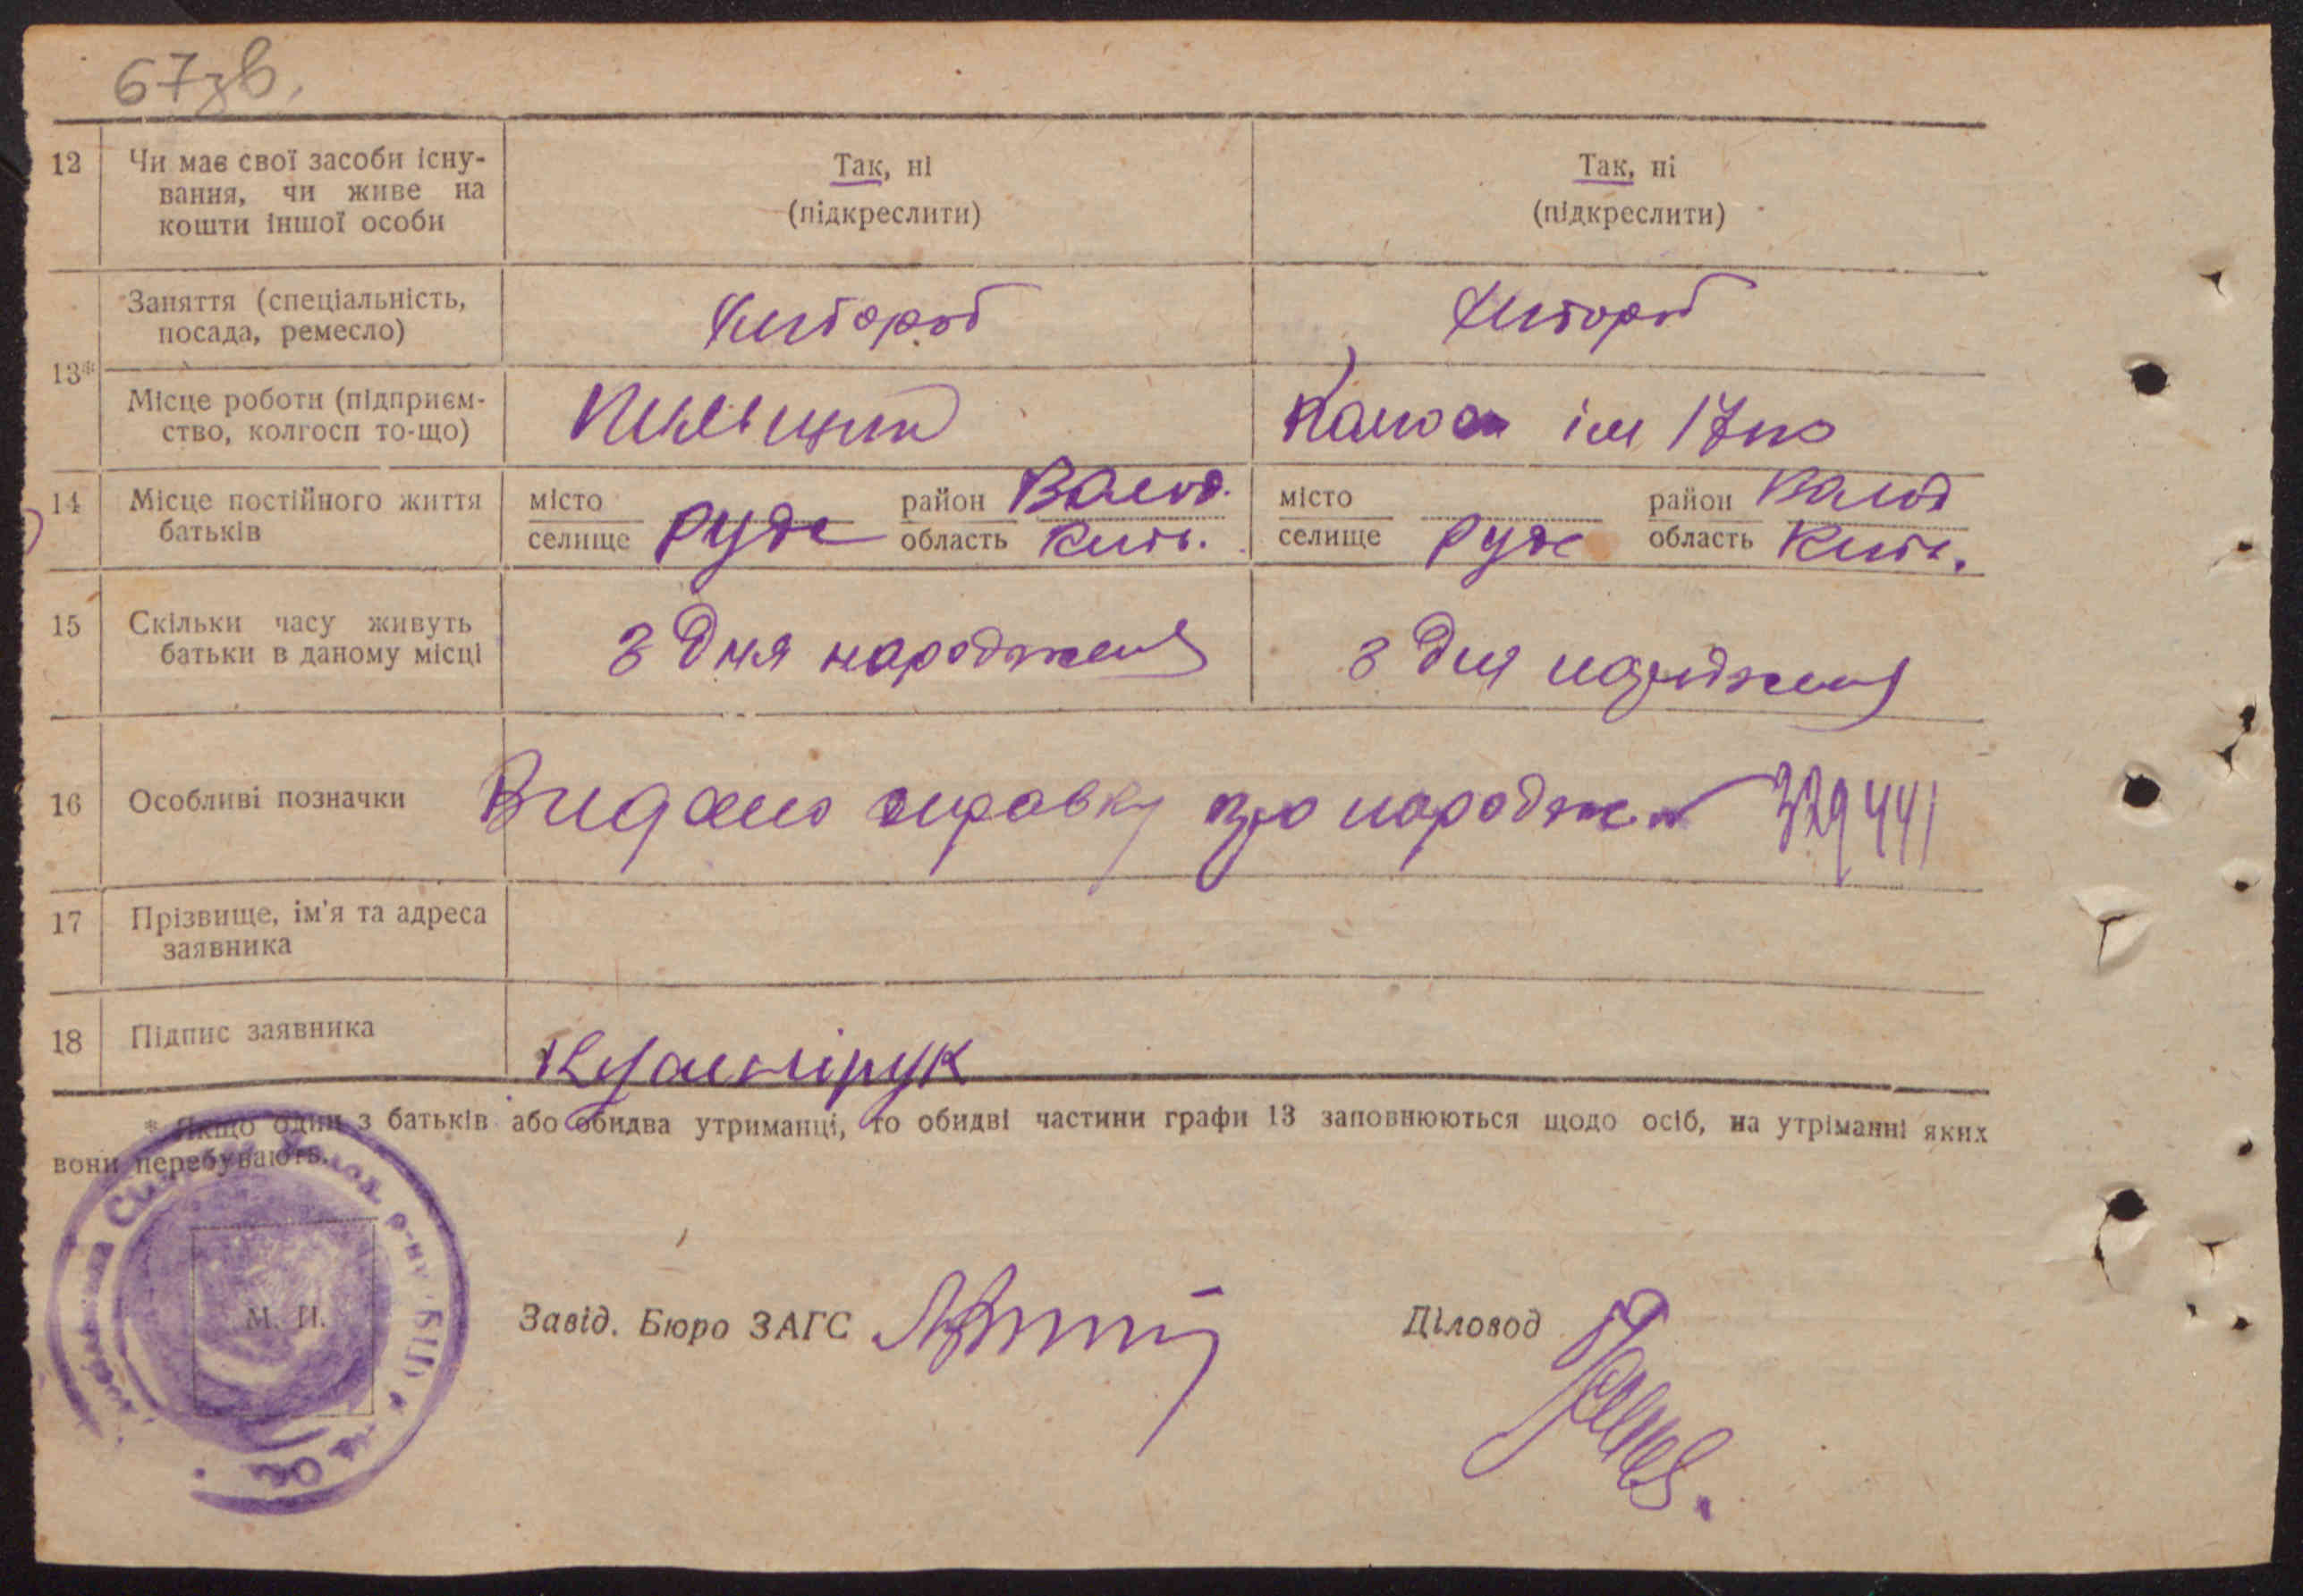 67зв.
12 Чи має свої засоби існу-
вання, чи живе на
кошти іншої особи
Так, ні
(підкреслити)
Так, ні
(підкреслити)
13*
Заняття (спеціальність,
посада, ремесло)
Хлібороб
Хлібороб
Місце роботи (підприєм-
ство, колгосп то-що)
ім 17
14 Місце постійного життя
батьків
місто
селище Рудє
район Волод.
область Київ.
місто
селище Рудє
район Волод
область Київ.
15 Скільки часу живуть
батьки в даному місці
З дня народження
З дня народження
16 Особливі позначки
Видано справку про народжен 329441
17 Прізвище, ім'я та адреса
заявника
18 Підпис заявника
* Якщо один з батьків або обидва утриманці, то обидві частини графи 13 заповнюються щодо осіб, на утріманні яких
вони перебувають.
М. П.
р-ну
Завід. Бюро ЗАГС
Діловод